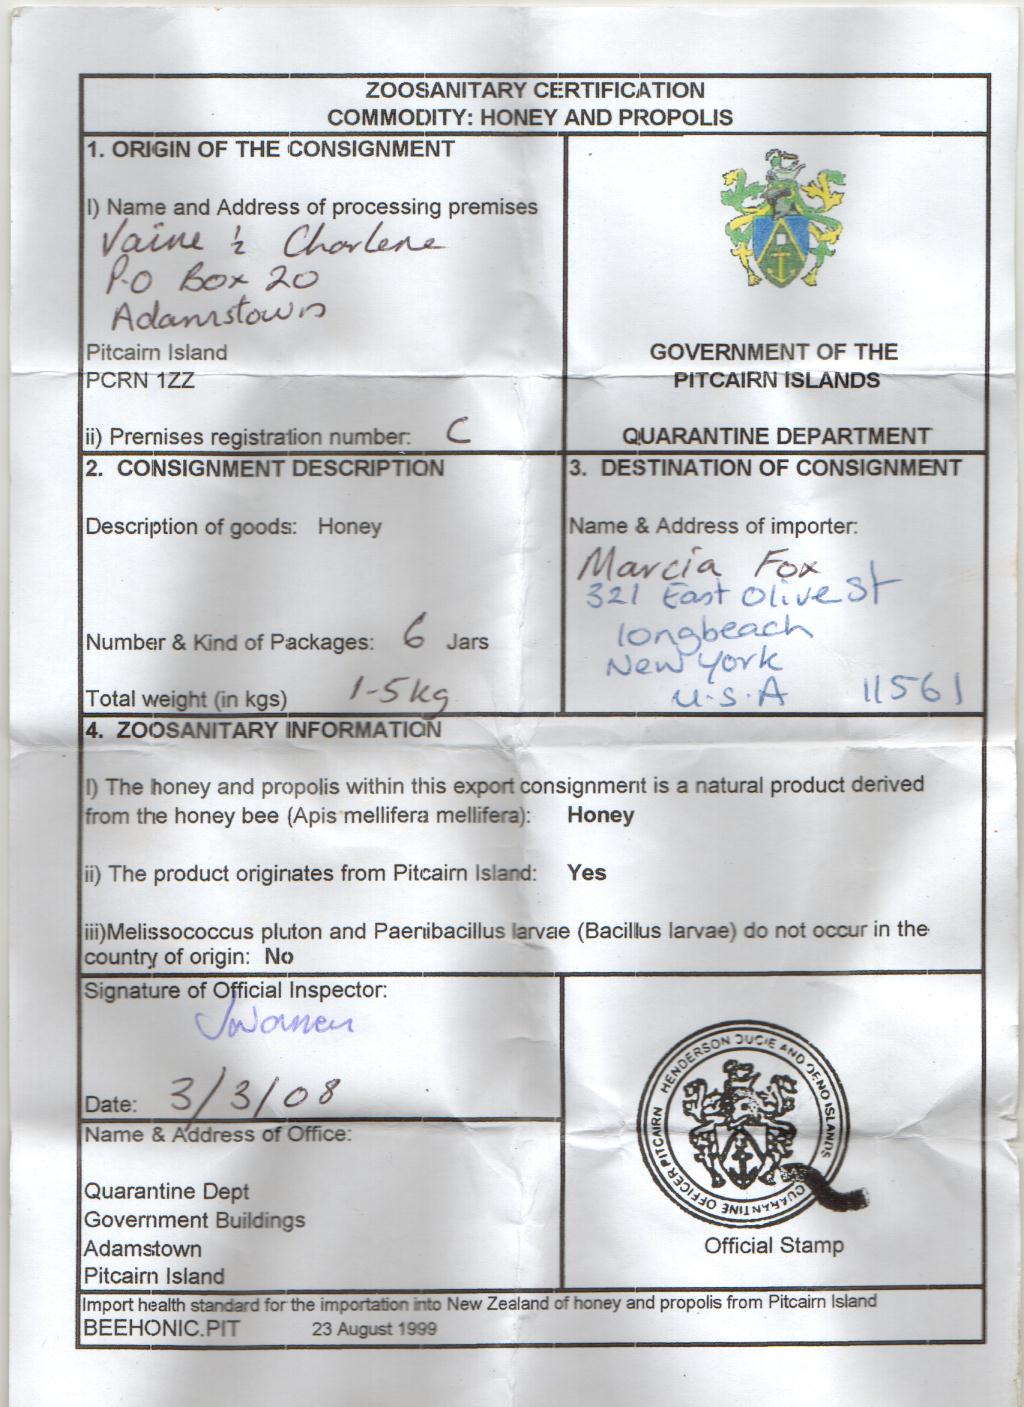 ZOOSANITARY CERTIFICATION
COMMODITY: HONEY AND PROPOLIS
1. ORIGIN OF THE CONSIGNMENT
I) Name and Address of processing premises
Vaine & Charlene
P.O Box 20
Adamstown
Pitcairn Island
PCRN 1ZZ
ii) Premises registration number: C
GOVERNMENT OF THE
PITCAIRN ISLANDS
QUARANTINE DEPARTMENT
2. CONSIGNMENT DESCRIPTION
Description of goods: Honey
Number & Kind of Packages: 6 Jars
Total weight (in kgs) 1-5kg
3. DESTINATION OF CONSIGNMENT
Name & Address of importer:
Marcia Fox
321 East Olive St
longbeach
New York
U.S.A 11561
4. ZOOSANITARY INFORMATION
I) The honey and propolis within this export consignment is a natural product derived
from the honey bee (Apis mellifera mellifera): Honey
ii) The product originates from Pitcairn Island: Yes
iii)Melissococcus pluton and Paenibacillus larvae (Bacillus larvae) do not occur in the
country of origin: No
Signature of Official Inspector:
Date: 3/3/08
Name & Address of Office:
Quarantine Dept
Government Buildings
Adamstown
Pitcairn Island
QUARANTINE OFFICER PITCAIRN HENDERSON DUCIE AND OENO ISLANDS
Official Stamp
Import health standard for the importation into New Zealand of honey and propolis from Pitcairn Island
BEEHONIC.PIT 23 August 1999